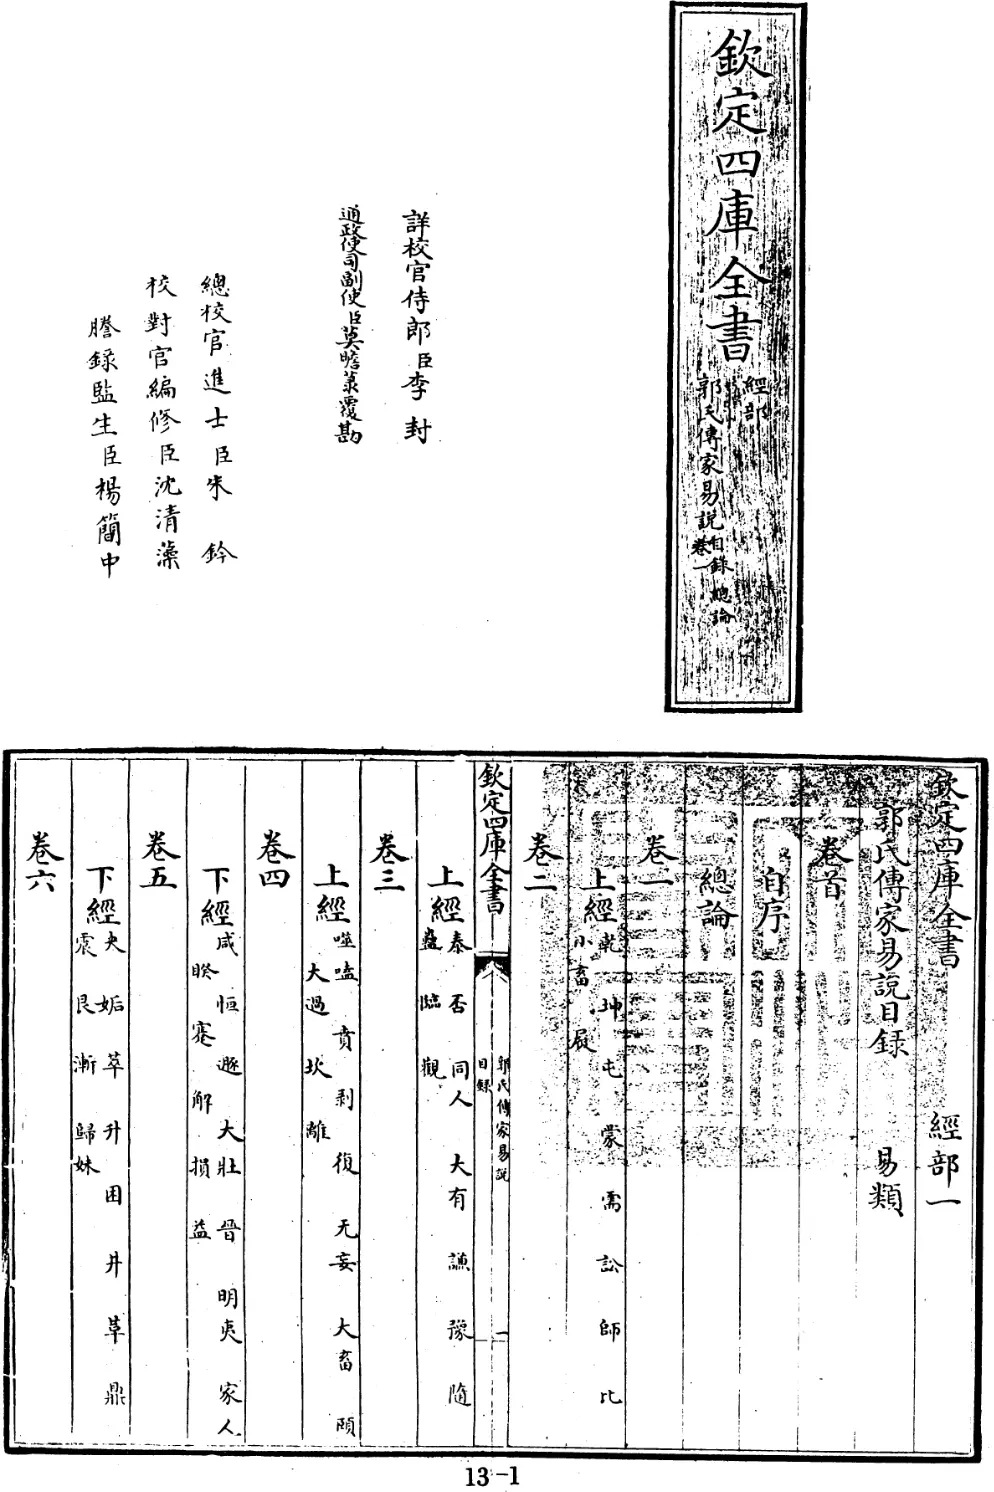 欽定四庫全書
經部
郭氏傳家易說
目� 總論
卷一
詳校官侍郎臣李封
通政使司副使臣莫瞻菉覆勘
總校官進士臣朱鈐
校對官編修臣沈清藻
謄錄監生臣楊簡中
欽定四庫全書 經部一
郭氏傳家易說目錄 易類
卷首
自序
總論
卷一
上經乾 坤 屯 蒙 需 訟 師 比
小畜 履
卷二
欽定四庫全書
郭氏傳家易說
目錄
一
上經泰 否 同人 大有 謙 豫 隨
蠱 臨 觀
卷三
上經噬嗑 賁 剥 復 无妄 大畜 頤
大過 坎 離
卷四
下經咸 恒 遯 大壯 晉 明夷 家人
睽 蹇 解 損 益
卷五
下經夬 姤 萃 升 困 井 革 鼎
震 艮 漸 歸妹
卷六
13-1